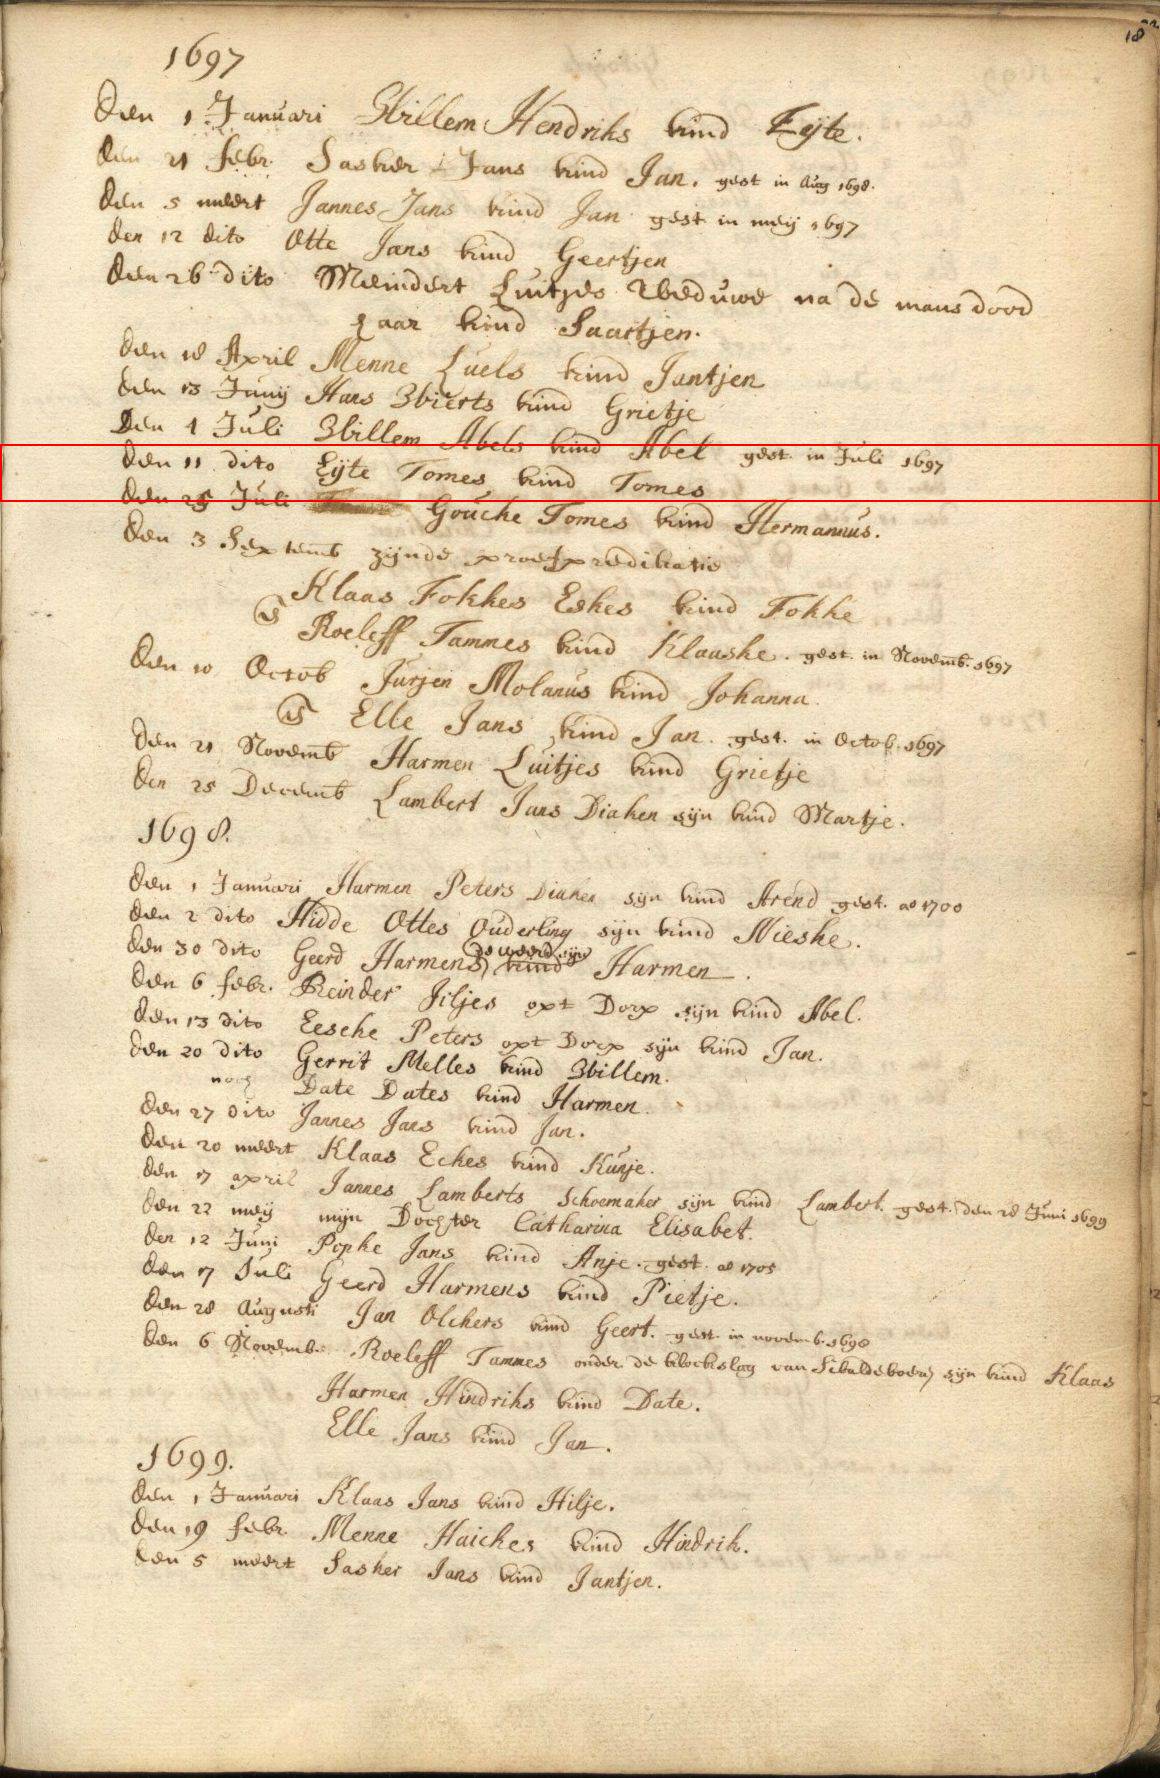 18
1697
Den 1 Januari Willem Hendriks kind Eijte.
Den 21 febr. Sasker Jans kind Jan. gest in Aug 1698.
Den 5 meert Jannes Jans kind Jan gest in meij 1697
Den 12 dito Otte Jans kind Geertjen
Den 26 dito Meindert Luitjes Weduwe na de mans dood
haar kind Saartjen.
Den 18 April Menne Luels kind Jantjen
Den 13 Junij Hans Wierts kind Grietje
Den 4 Juli Willem Abels kind Abel gest. in Juli 1697
Den 11 dito Eijte Tomes kind Tomes
Den 25 Juli Gouche Tomes kind Hermannus.
Den 3 Septemb zijnde proefpredikatie
Klaas Fokkes Eskes kind Fokke
Roeleff Tammes kind Klaaske. gest. in Novemb. 1697
Den 10 Octob Jurjen Molanus kind Johanna
Elle Jans kind Jan. gest. in Octob. 1697
Den 21 Novemb Harmen Luitjes kind Grietje
Den 25 Decemb Lambert Jans Diaken sijn kind Martje.
1698.
Den 1 Januari Harmen Peters Diaken sijn kind Arend gest. ao 1700
Den 2 dito Hidde Ottes Ouderling sijn kind Nieske.
Den 30 dito Geerd Harmens de weerd sijn kind Harmen.
Den 6 febr. Reinder Jiljes opt Dorp sijn kind Abel.
Den 13 dito Eesche Peters opt Dorp sijn kind Jan.
Den 20 dito Gerrit Melles kind Willem.
noch Date Dates kind Harmen.
Den 27 dito Jannes Jans kind Jan.
Den 20 meert Klaas Eches kind Kunje.
Den 17 april Jannes Lamberts Schoemaker sijn kind Lambert. gest. den 28 Juni 1699
Den 22 meij mijn Dochter Catharina Elisabet.
Den 12 Juni Popke Jans kind Anje. gest. ao 1705
Den 17 Juli Geerd Harmens kind Pietje.
Den 28 Augusti Jan Olchers kind Geert. gest. in novemb. 1698
Den 6 Novemb. Roeleff Tammes onder de klockslag van Sibaldeboeren sijn kind Klaas
Harmen Hindriks kind Date.
Elle Jans kind Jan.
1699.
Den 1 Januari Klaas Jans kind Hilje.
Den 19 febr. Menne Haiches kind Hindrik.
Den 5 meert Sasker Jans kind Jantjen.